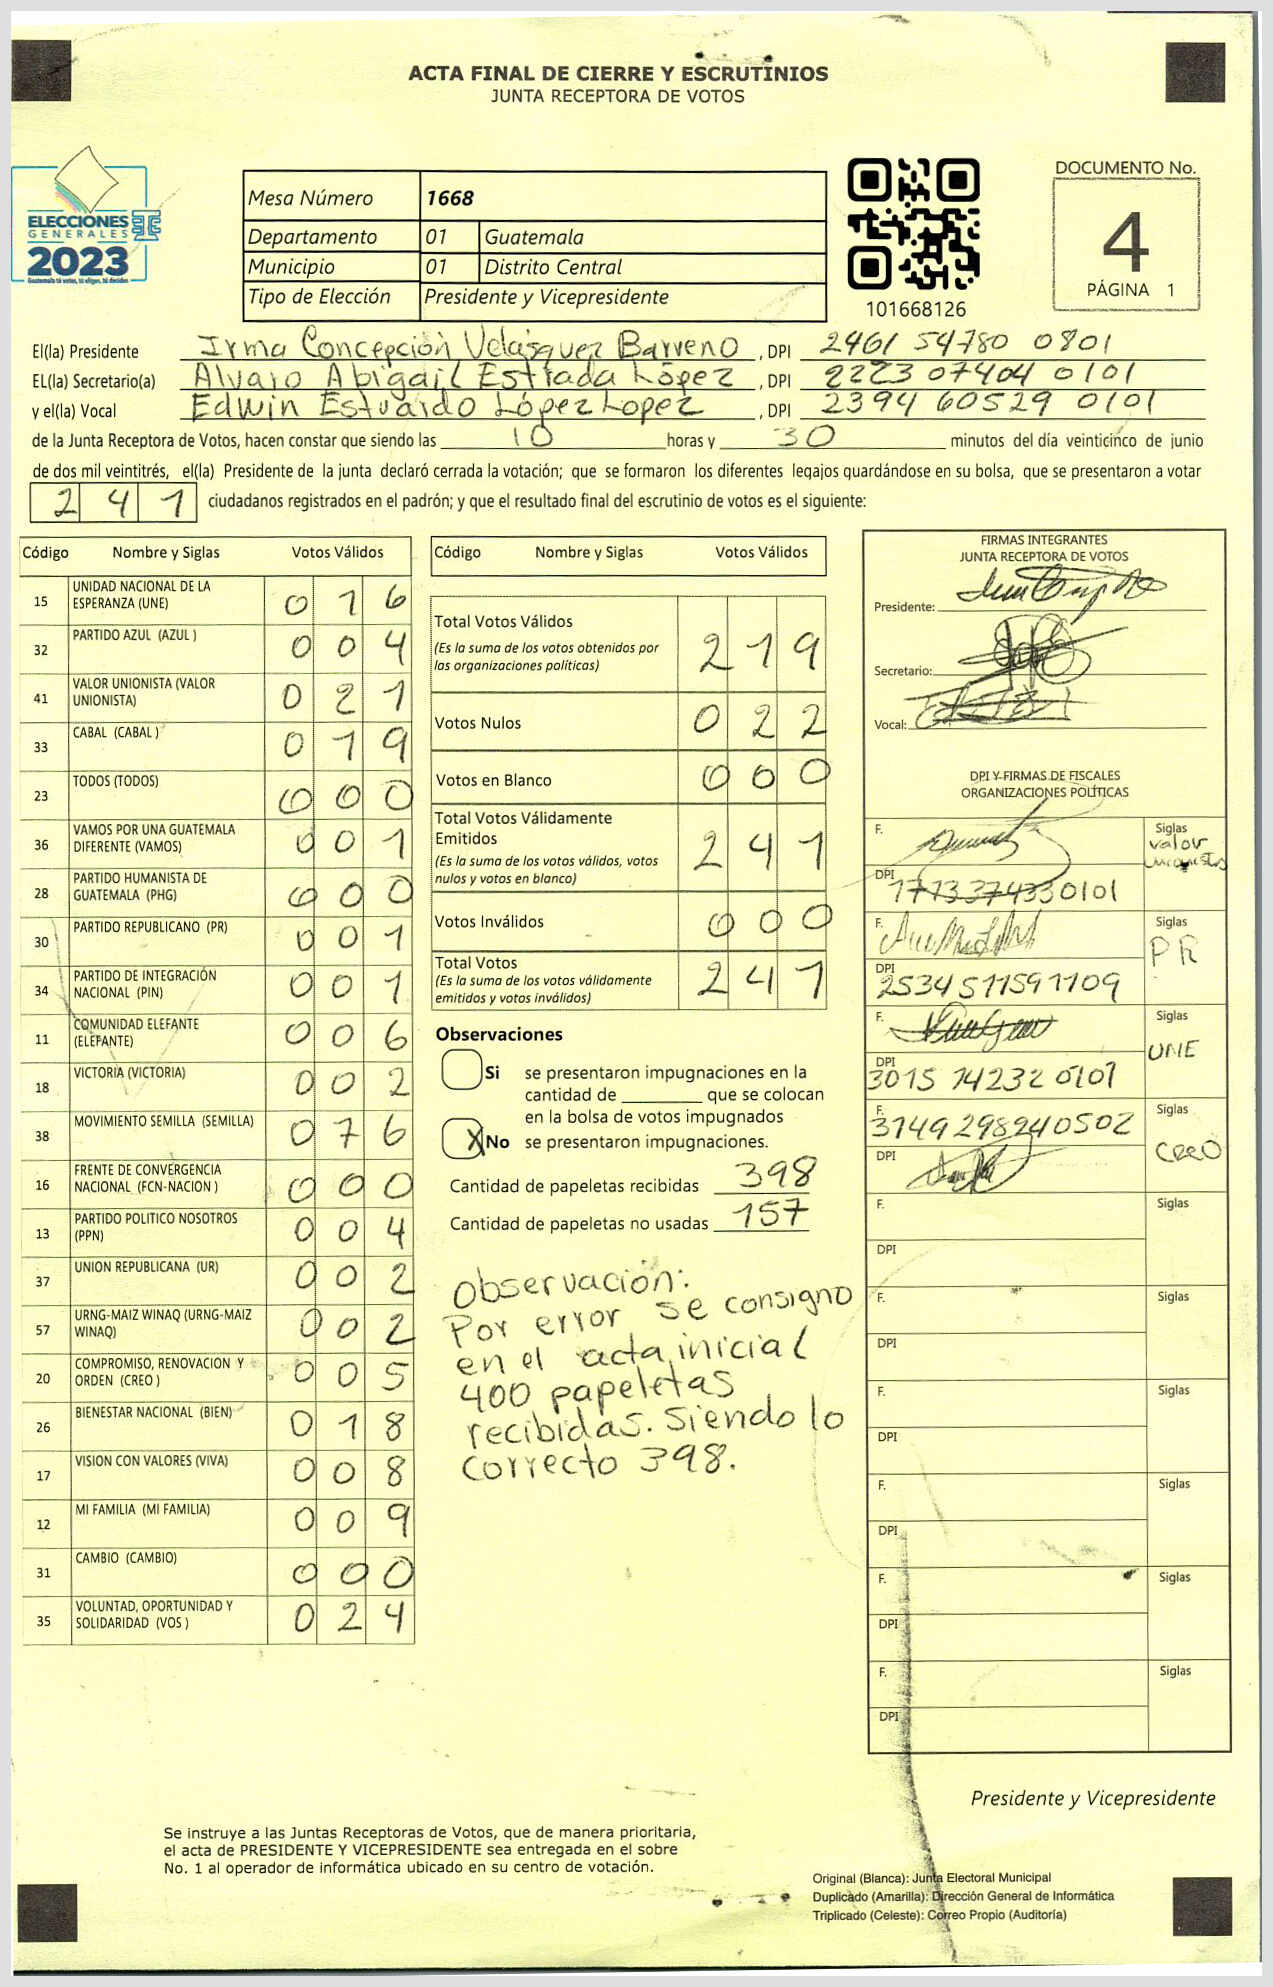 ACTA FINAL DE CIERRE Y ESCRUTINIOS
JUNTA RECEPTORA DE VOTOS
ELECCIONES
GENERALES
2023
Guatemala tú votas, tú eliges, tú decides
Mesa Número 1668
Departamento 01 Guatemala
Municipio 01 Distrito Central
Tipo de Elección Presidente y Vicepresidente
101668126
DOCUMENTO No.
4
PÁGINA 1
El(la) Presidente Irma Concepción Velásquez Barreno , DPI 2461 54780 0801
EL(la) Secretario(a) Alvaro Abigail Estrada López , DPI 2223 07404 0101
y el(la) Vocal Edwin Estuardo López Lopez , DPI 2394 60529 0101
de la Junta Receptora de Votos, hacen constar que siendo las 10 horas y 30 minutos del día veinticinco de junio
de dos mil veintitrés, el(la) Presidente de la junta declaró cerrada la votación; que se formaron los diferentes legajos guardándose en su bolsa, que se presentaron a votar
2 4 1 ciudadanos registrados en el padrón; y que el resultado final del escrutinio de votos es el siguiente:
Código Nombre y Siglas Votos Válidos
15 UNIDAD NACIONAL DE LA
ESPERANZA (UNE) 0 1 6
32 PARTIDO AZUL (AZUL ) 0 0 4
41 VALOR UNIONISTA (VALOR
UNIONISTA) 0 2 1
33 CABAL (CABAL ) 0 1 9
23 TODOS (TODOS) 0 0 0
36 VAMOS POR UNA GUATEMALA
DIFERENTE (VAMOS) 0 0 1
28 PARTIDO HUMANISTA DE
GUATEMALA (PHG) 0 0 0
30 PARTIDO REPUBLICANO (PR) 0 0 1
34 PARTIDO DE INTEGRACIÓN
NACIONAL (PIN) 0 0 1
11 COMUNIDAD ELEFANTE
(ELEFANTE) 0 0 6
18 VICTORIA (VICTORIA) 0 0 2
38 MOVIMIENTO SEMILLA (SEMILLA) 0 7 6
16 FRENTE DE CONVERGENCIA
NACIONAL (FCN-NACION ) 0 0 0
13 PARTIDO POLITICO NOSOTROS
(PPN) 0 0 4
37 UNION REPUBLICANA (UR) 0 0 2
57 URNG-MAIZ WINAQ (URNG-MAIZ
WINAQ) 0 0 2
20 COMPROMISO, RENOVACION Y
ORDEN (CREO ) 0 0 5
26 BIENESTAR NACIONAL (BIEN) 0 1 8
17 VISION CON VALORES (VIVA) 0 0 8
12 MI FAMILIA (MI FAMILIA) 0 0 9
31 CAMBIO (CAMBIO) 0 0 0
35 VOLUNTAD, OPORTUNIDAD Y
SOLIDARIDAD (VOS ) 0 2 4
Código Nombre y Siglas Votos Válidos
Total Votos Válidos 2 1 9
(Es la suma de los votos obtenidos por
las organizaciones políticas)
Votos Nulos 0 2 2
Votos en Blanco 0 0 0
Total Votos Válidamente
Emitidos 2 4 1
(Es la suma de los votos válidos, votos
nulos y votos en blanco)
Votos Inválidos 0 0 0
Total Votos 2 4 1
(Es la suma de los votos válidamente
emitidos y votos inválidos)
Observaciones
Si se presentaron impugnaciones en la
cantidad de ________ que se colocan
en la bolsa de votos impugnados
X No se presentaron impugnaciones.
Cantidad de papeletas recibidas 398
Cantidad de papeletas no usadas 157
Observación:
Por error se consigno
en el acta inicial
400 papeletas
recibidas. Siendo lo
correcto 398.
FIRMAS INTEGRANTES
JUNTA RECEPTORA DE VOTOS
Presidente:
Secretario:
Vocal:
DPI Y FIRMAS DE FISCALES
ORGANIZACIONES POLÍTICAS
F. Siglas
valor
DPI 1773374330101
F. Siglas
PR
DPI
2534511591109
F. Siglas
UNE
DPI
3015 14232 0101
F. Siglas
3149298940502
CREO
DPI
F. Siglas
DPI
F. Siglas
DPI
F. Siglas
DPI
F. Siglas
DPI
F. Siglas
DPI
F. Siglas
DPI
Presidente y Vicepresidente
Se instruye a las Juntas Receptoras de Votos, que de manera prioritaria,
el acta de PRESIDENTE Y VICEPRESIDENTE sea entregada en el sobre
No. 1 al operador de informática ubicado en su centro de votación.
Original (Blanca): Junta Electoral Municipal
Duplicado (Amarilla): Dirección General de Informática
Triplicado (Celeste): Correo Propio (Auditoría)